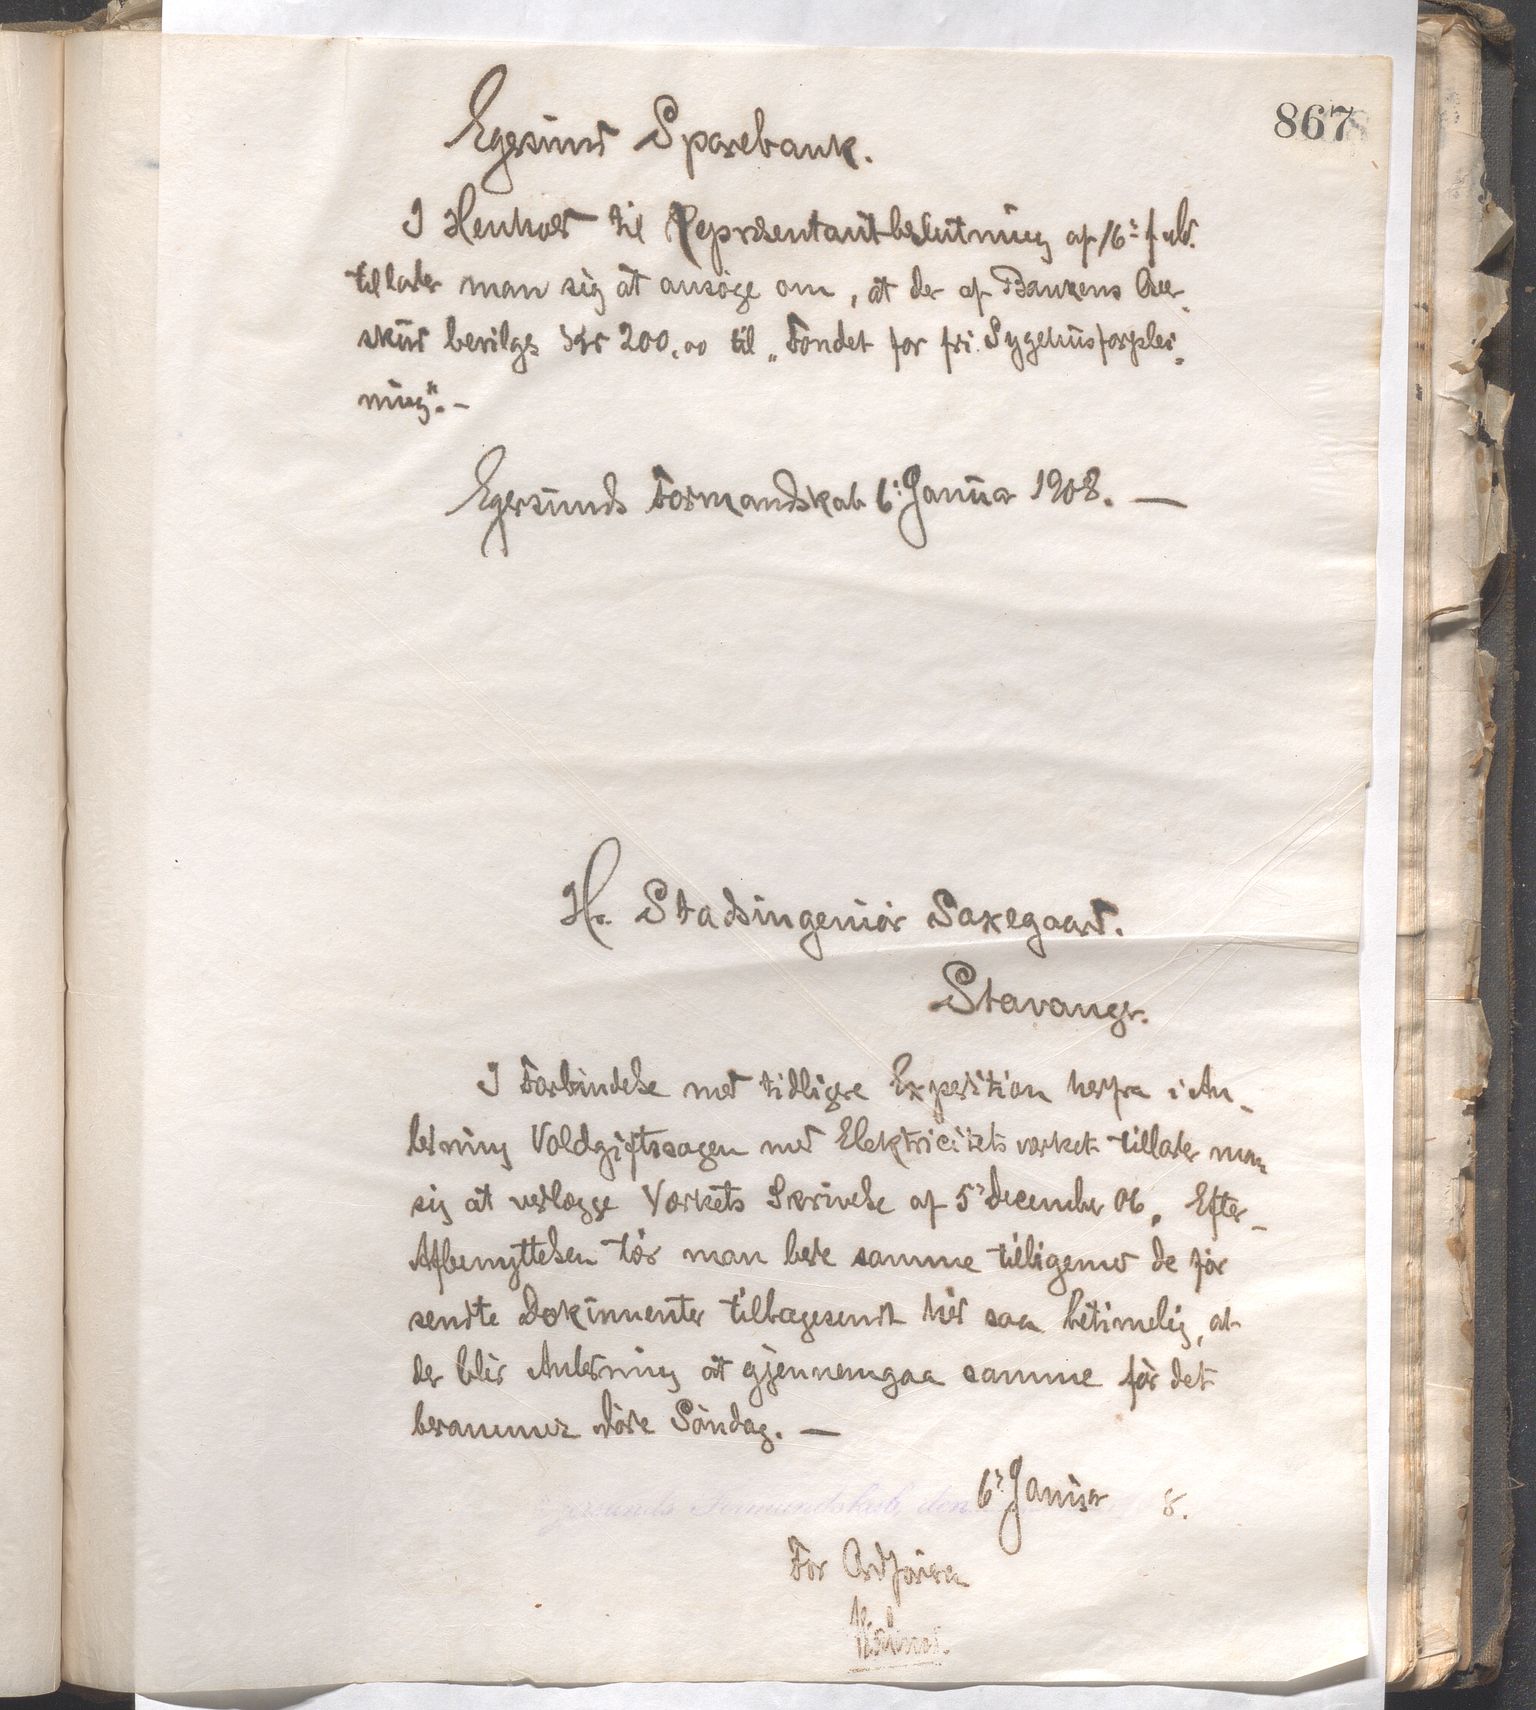 867
Egersund Sparebank.
I Henhold til Repræsentantbeslutning af 16: f.
tillader man sig at ansøge om, at der af Bankens Over-
skud bevilges Kr 200.00 til "Fondet for fri Sygehusforplei-
ning". -
Egersunds Formandskab 6: Januar 1908. —
Hr. Stadsingeniør Saxegaard.
Stavanger.
I Forbindelse med tidligere Expedition herfra i An-
ledning Voldgiftssagen med Elektricitetsværket tillader man
sig at vedlægge Værkets Skrivelse af 5' december 06. Efter
Afbenyttelsen tør man bede samme tilligemed de før
sendte Dokumenter tilbagesendt hid saa betimelig, at
der blir Anledning at gjennemgaa samme før det
berammede Møde Søndag. —
Egersunds Formandskab, den 6' Januar 8.
For Ordføreren